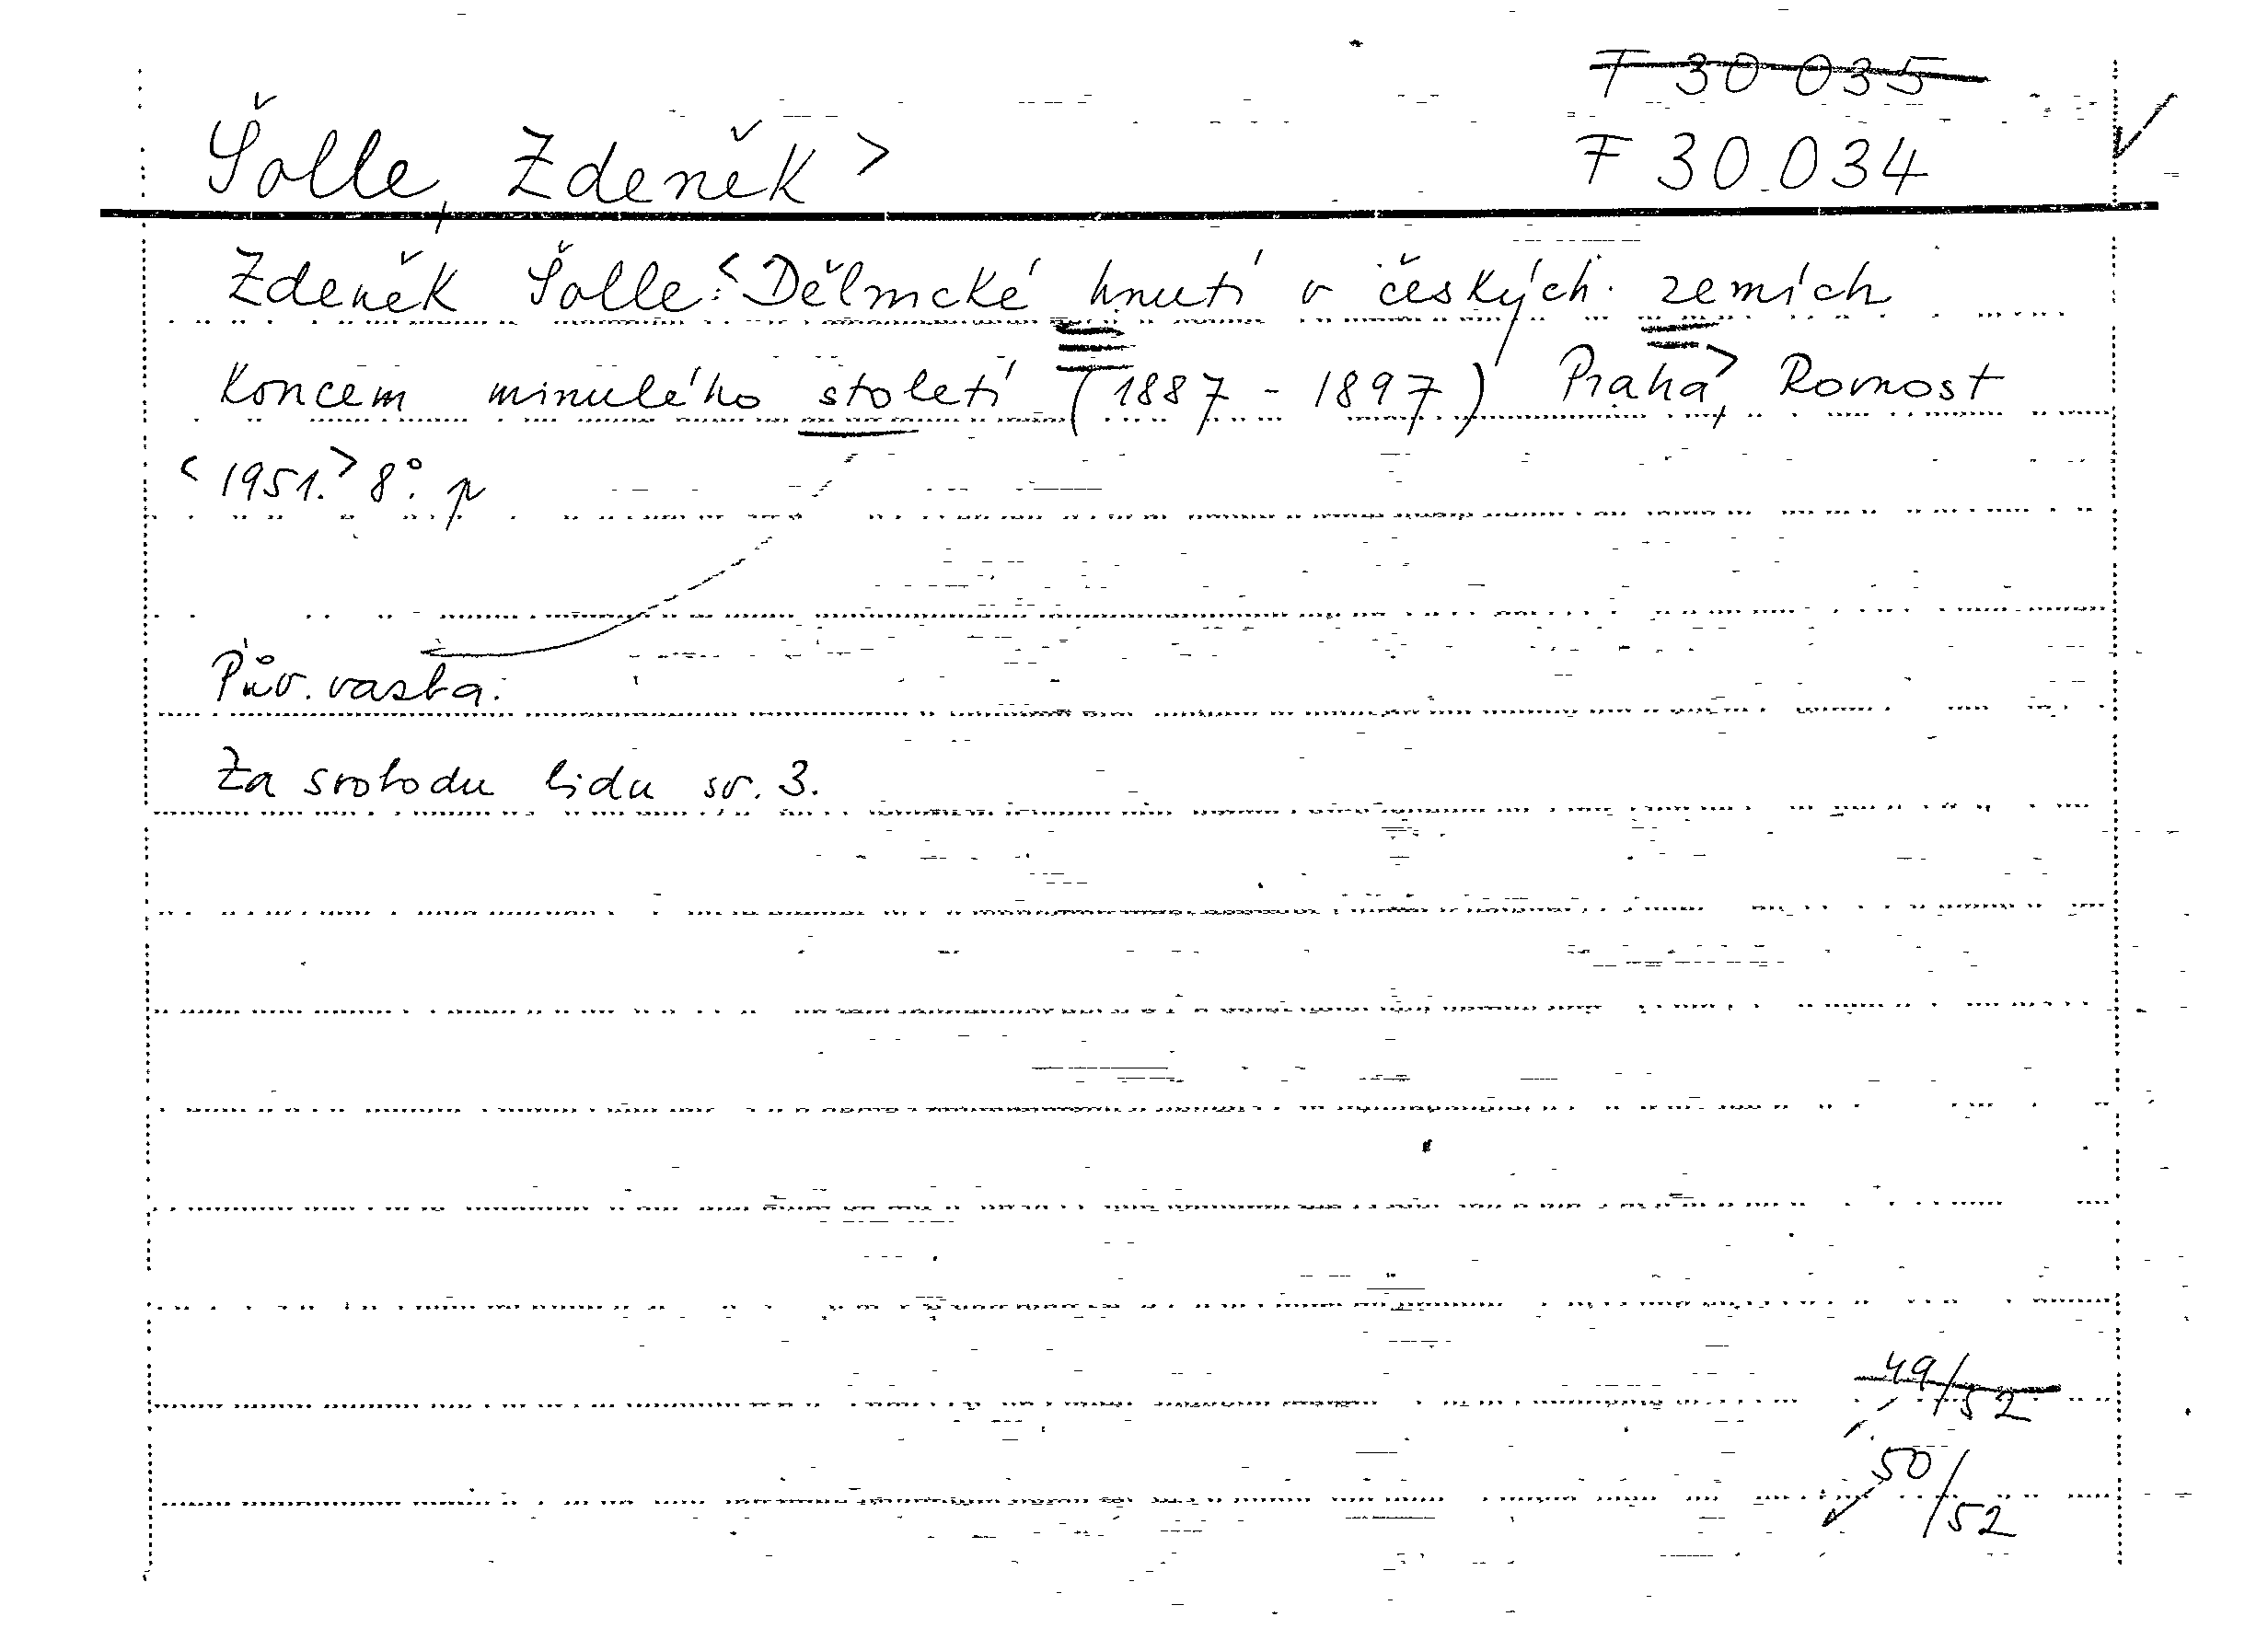 F 30 035
Šolle, Zdeněk >
F 30.034
Zdeněk Šolle:< Dělnické hnutí v českých zemích
koncem minulého století (1887 - 1897) Praha,> Rovnost
<1951.> 8°. p
Pův. vazba.
Za svobodu lidu sv. 3.
49/52
50/52